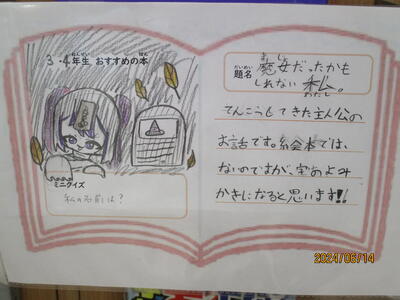 3・4年生 おすすめの本
ねんせい
ほん
ミニクイズ
私の名前は？
だいめい
題名
まじょ
魔女だったかも
しれない私。
わたし
てんこうしてきた主人公の
お話です。絵本では、
ないのですが、字のよみ
かきになると思います!!
2024/06/14